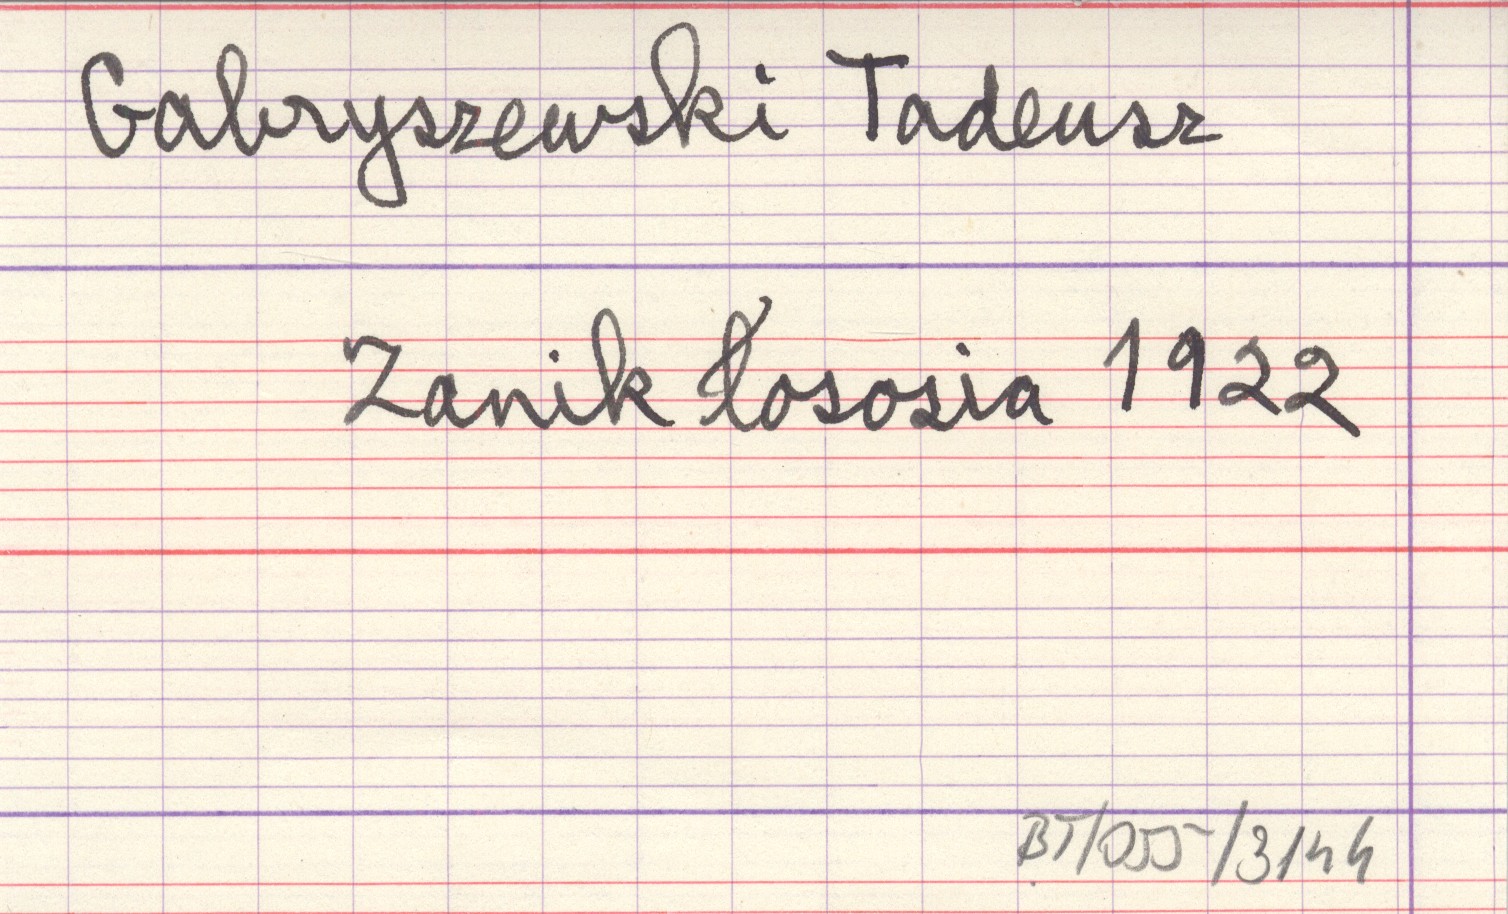 Gabryszewski Tadeusz
Zanik łososia 1922
BT/055/3144